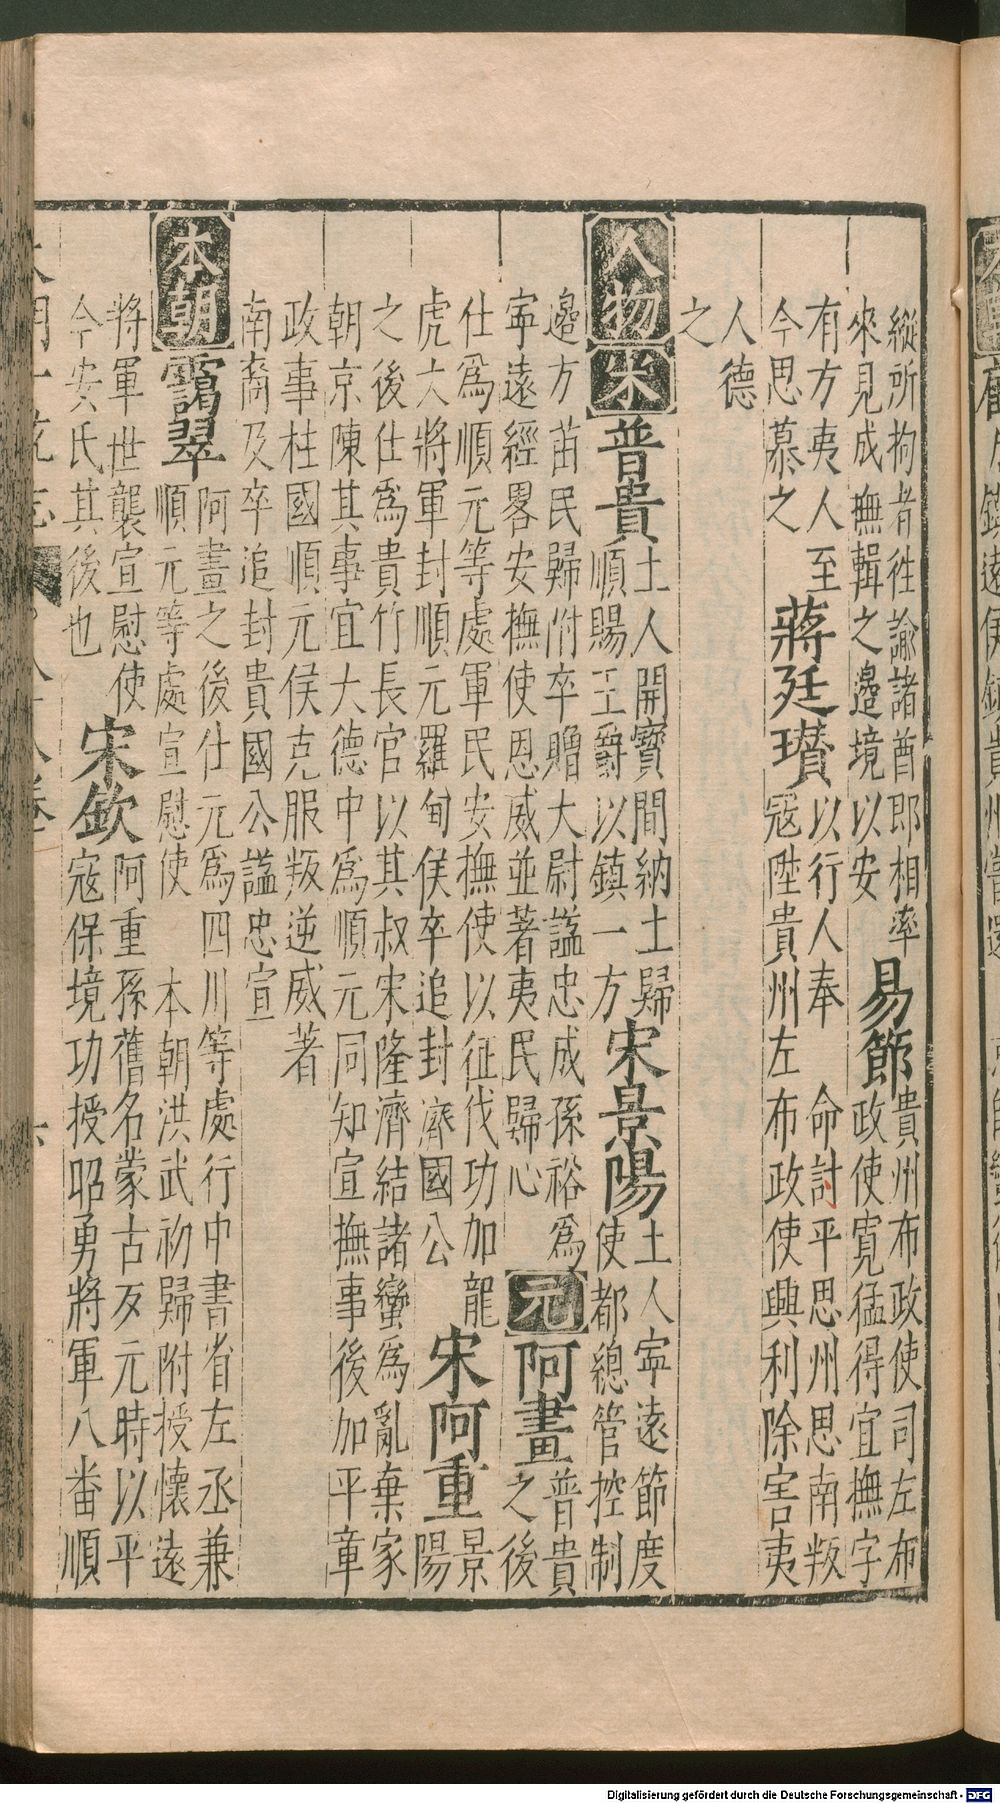 縱所拘者徃諭諸酋郎相率
來見成撫輯之邊境以安
易節
貴州布政使司左布
政使寛猛得宜撫字
有方夷人至
今思慕之
蔣廷瓚
以行人奉 命討平思州思南叛
寇陞貴州左布政使興利除害夷
人德
之
人物 宋 普貴
土人開寳間納土歸
順賜王爵以鎮一方
宋景陽
土人寜遠節度
使都總管控制
邊方苗民歸附卒贈大尉謚忠成孫裕爲
寜遠經畧安撫使恩威並著夷民歸心
元 阿畫
普貴
之後
仕爲順元等處軍民安撫使以征伐功加龍
虎大將軍封順元羅甸侯卒追封濟國公
宋阿重
景
陽
之後仕爲貴竹長官以其叔宋隆濟結諸蠻爲亂棄家
朝京陳其事宜大德中爲順元同知宣撫事後加平章
政事柱國順元侯克服叛逆威著
南裔及卒追封貴國公謚忠宣
本朝 靄翠
阿畫之後仕元爲四川等處行中書省左丞兼
順元等處宣慰使 本朝洪武初歸附授懷遠
將軍世襲宣慰使
今安氏其後也
宋欽
阿重孫舊名蒙古歹元時以平
寇保境功授昭勇將軍八番順
Digitalisierung gefördert durch die Deutsche Forschungsgemeinschaft - DFG